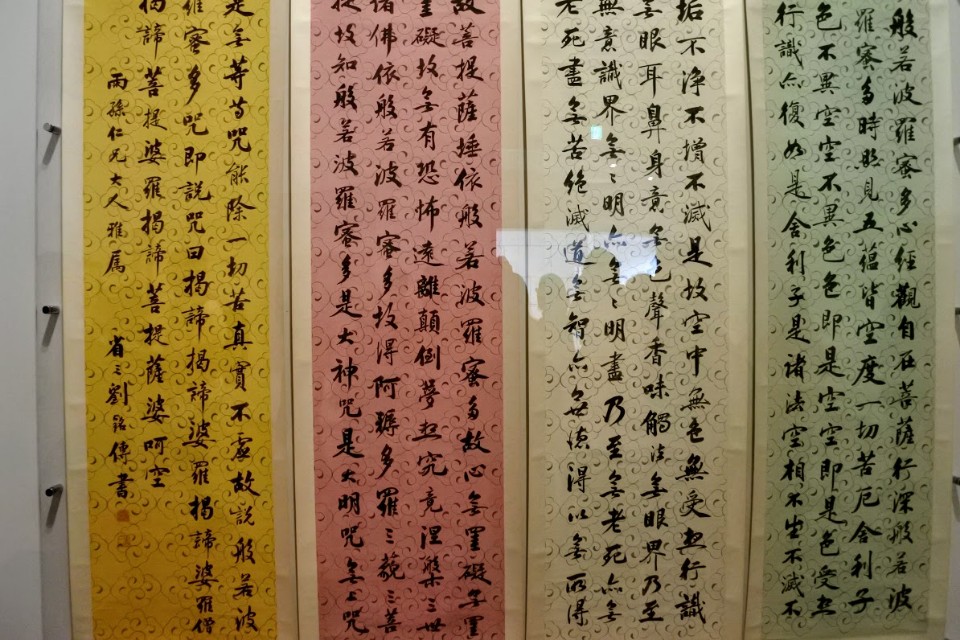 般若波羅蜜多心經觀自在菩薩行深般若波
羅蜜多時照見五蘊皆空度一切苦厄舍利子
色不異空空不異色色即是空空即是色受想
行識亦復如是舍利子是諸法空相不生不滅不
垢不淨不增不滅是故空中無色無受想行識
無眼耳鼻身意無色聲香味觸法無眼界乃至
無意識界無無明亦無無明盡乃至無老死亦無
老死盡無苦絕滅道無智亦無世德得以無所得
故菩提薩埵依般若波羅蜜多故心無罣礙無罣
罣礙故無有恐怖遠離顛倒夢想究竟涅槃三世
諸佛依般若波羅蜜多故得阿耨多羅三藐三菩
提故知般若波羅蜜多是大神咒是大明咒無上咒
是無等等咒能除一切苦真實不虛故說般若波
羅蜜多咒即說咒曰揭諦揭諦婆羅揭諦婆羅僧
揭諦菩提婆羅揭諦菩提薩婆呵空
雨孫仁兄大人雅屬
省三劉銘傳書